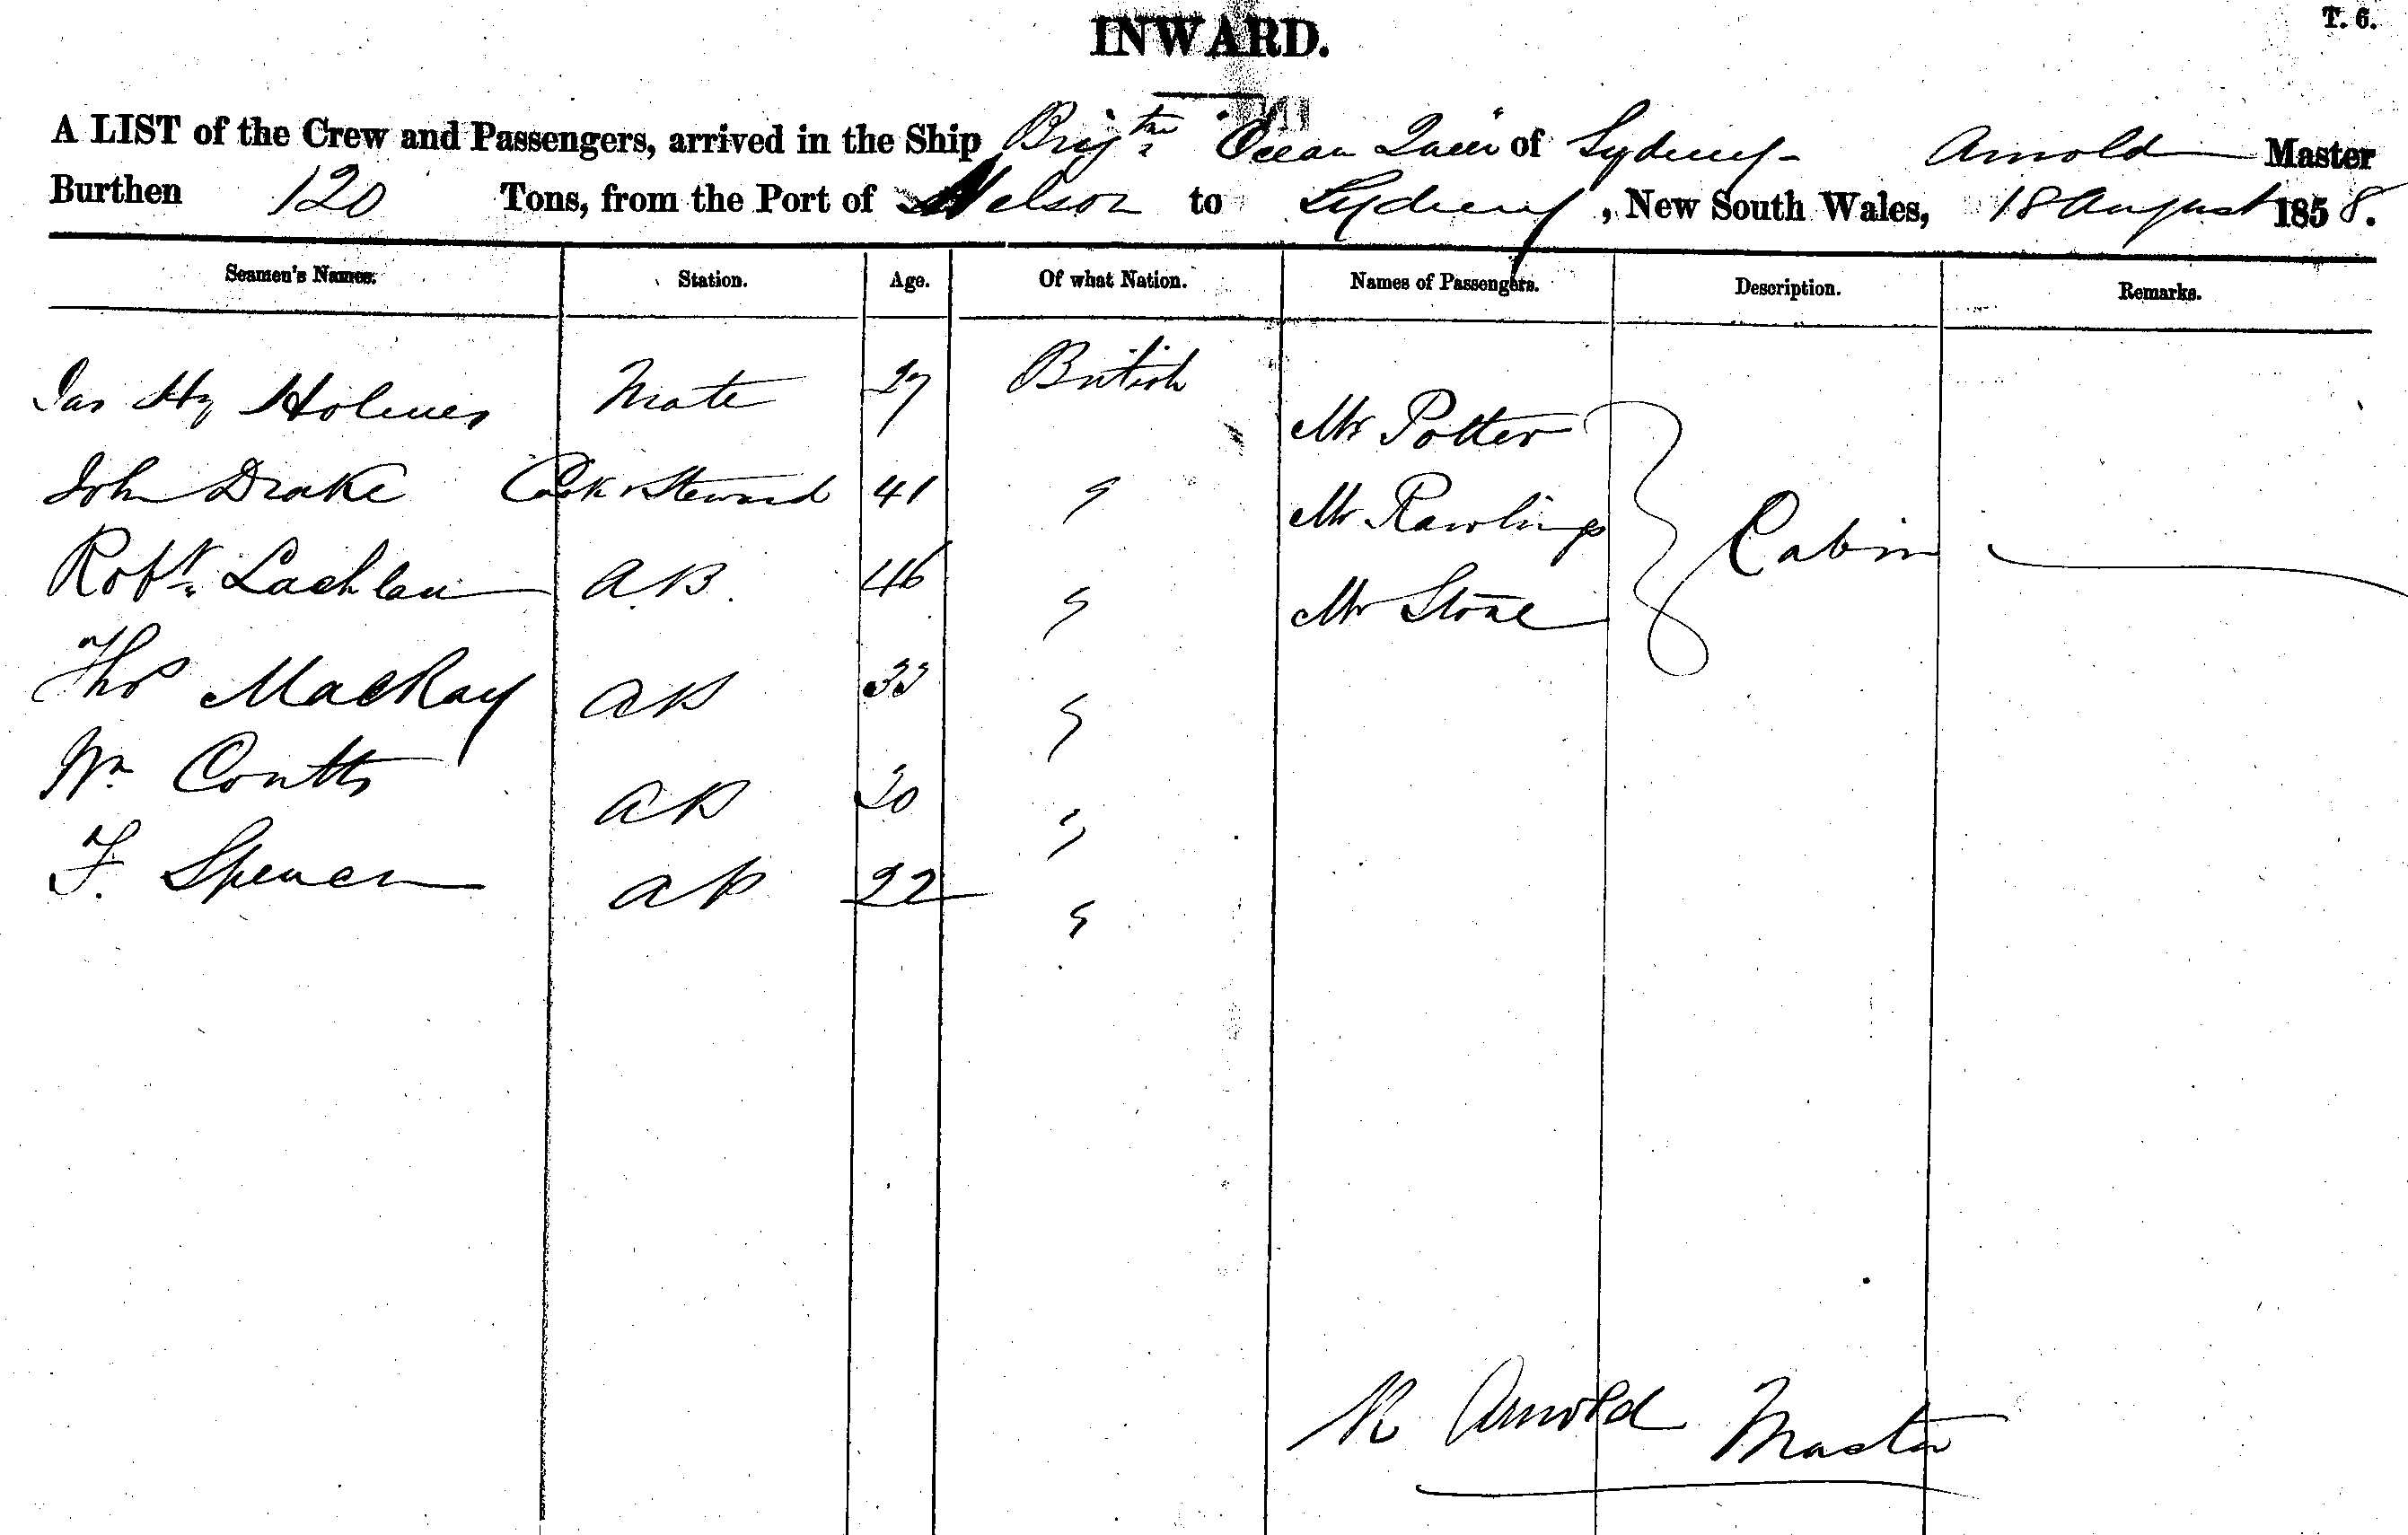 T. 6.
INWARD.
A LIST of the Crew and Passengers, arrived in the Ship Brigtne Ocean Queen of Sydney - Arnold Master
Burthen 120 Tons, from the Port of Nelson to Sydney, New South Wales, 18 August 1858.
Seamen's Names. Station. Age. Of what Nation. Names of Passengers. Description. Remarks.
Jas Hy Holmes Mate 27 British Mr Potter
John Drake Cook & Steward 41 " Mr Rawlings Cabin
Robt Lachlan AB. 46 " Mr Stone
Thos MacKay AB 33 "
Wm Coutts AB 30 "
F. Spencer AB 22 "
R Arnold Master